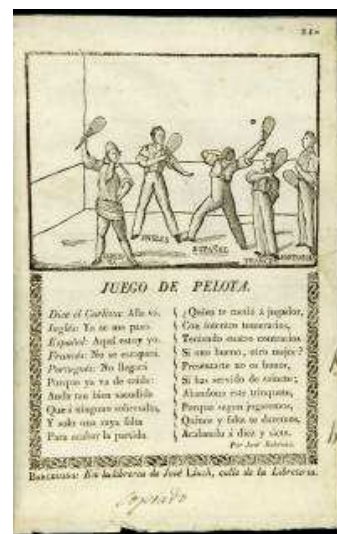 INGLES
ESPAÑOL
FRANCES
JUEGO DE PELOTA.
Dice el Carlista: Allá vá.
Inglés: Yo se une paso.
Español: Aquí estoy yo.
Francés: No se escapará.
Portugués: No llegará
Porque ya va de caida:
Anda tan bien sacudida
Que á ninguno sobresalta,
Y solo una raya falta
Para acabar la partida.
¿Quién te metió á jugador,
Con intentos temerarios,
Teniendo cuatro contrarios
Si uno bueno, otro mejor?
Presentarte no es honor,
Si has servido de sainete;
Abandona este trinquete,
Porque segun jugaremos,
Quince y falta te daremos,
Acabando á diez y siete.
Por José
BARCELONA: En la librería de José Lluch, calle de la Libretería.